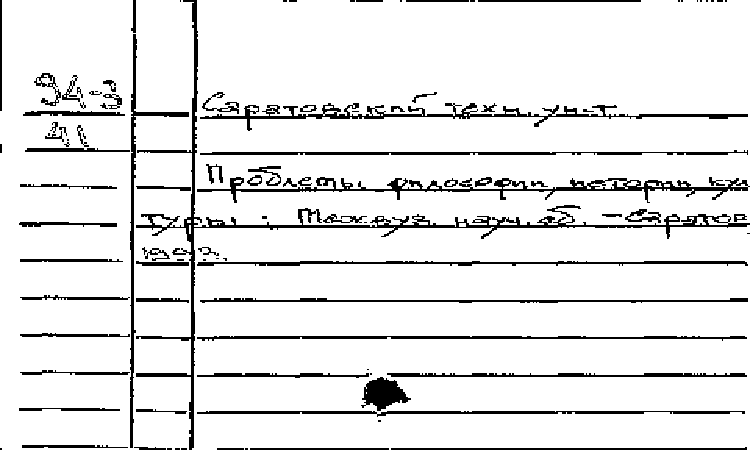 94-3
41
Саратовский техн. ун-т
Проблемы философии, истории, куль
туры : Межвуз. науч. сб. - Саратов
1993.